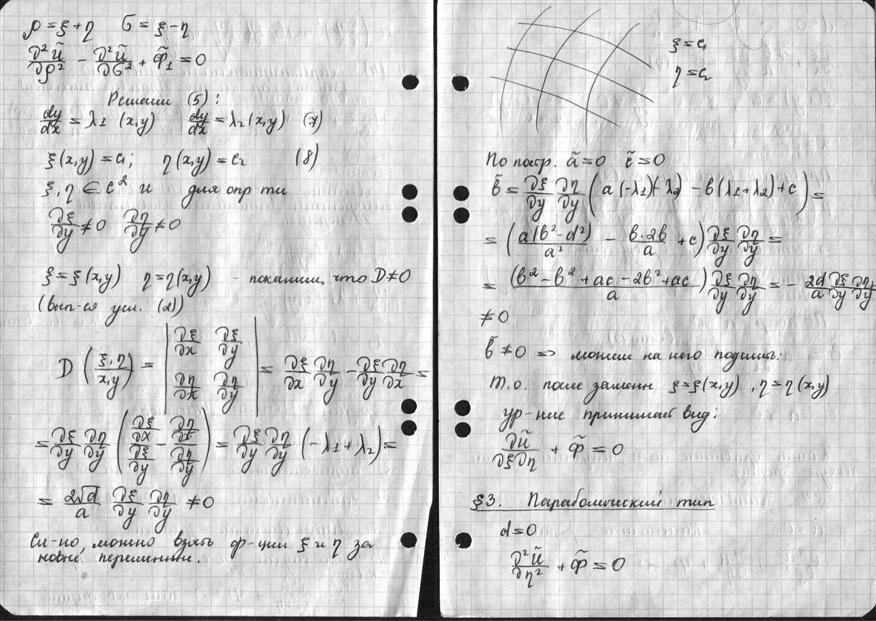 ρ = ξ + η   σ = ξ − η
∂²ũ/∂ρ² − ∂²ũ/∂σ² + Φ̃₁ = 0
Решаем (5):
dy/dx = λ₁(x,y)   dy/dx = λ₂(x,y)   (7)
ξ(x,y) = c₁;   η(x,y) = c₂   (8)
ξ, η ∈ C² и для опр-ти
∂ξ/∂y ≠ 0   ∂η/∂y ≠ 0
ξ = ξ(x,y)   η = η(x,y) - покажем, что D ≠ 0
(вып-ся усл. (2))
D(ξ,η / x,y) = | ∂ξ/∂x  ∂ξ/∂y ; ∂η/∂x  ∂η/∂y | = ∂ξ/∂x ∂η/∂y − ∂ξ/∂y ∂η/∂x =
= ∂ξ/∂y ∂η/∂y ( (∂ξ/∂x)/(∂ξ/∂y) − (∂η/∂x)/(∂η/∂y) ) = ∂ξ/∂y ∂η/∂y (−λ₁ + λ₂) =
= 2√d/a ∂ξ/∂y ∂η/∂y ≠ 0
Сл-но, можно взять ф-ции ξ и η за
новые переменны.
ξ = c₁
η = c₂
По постр. ã = 0   c̃ = 0
b̃ = ∂ξ/∂y ∂η/∂y ( a(−λ₁)(−λ₂) − b(λ₁ + λ₂) + c ) =
= ( a(b² − d²)/a² − b·2b/a + c ) ∂ξ/∂y ∂η/∂y =
= ( (b² − b² + ac − 2b² + ac)/a ) ∂ξ/∂y ∂η/∂y = − 2d/a ∂ξ/∂y ∂η/∂y
≠ 0
b̃ ≠ 0 => можем на него поделить.
Т.о. после замены ξ = ξ(x,y), η = η(x,y)
ур-ние принимает вид:
∂ũ/∂ξ∂η + Φ̃ = 0
§3. Параболический тип
d = 0
∂²ũ/∂η² + Φ̃ = 0